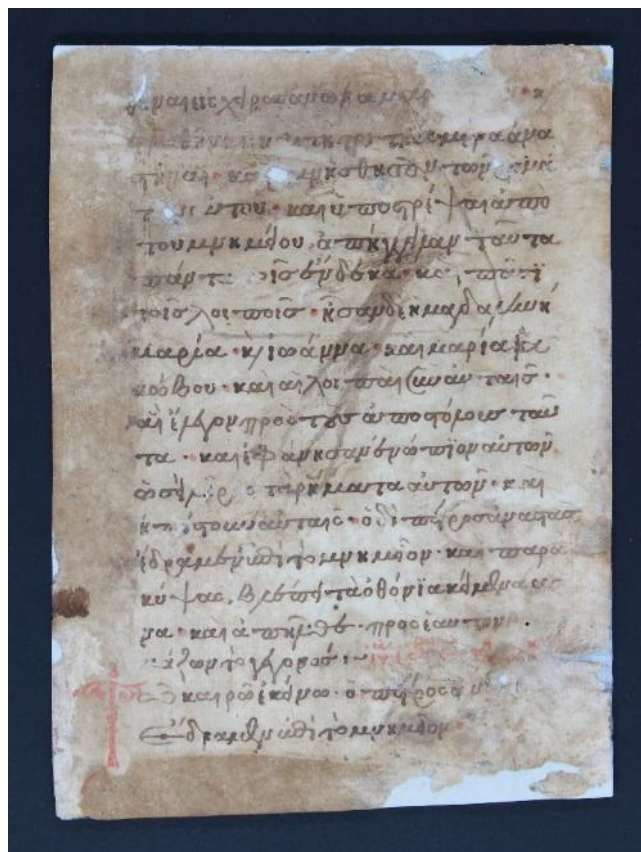 θῆναι εἰς χεῖρας ἀνων ἁμαρ
θῆναι καὶ τῆ τρίτη ἡμέρα ἀνα
στῆναι· καὶ ἐμνήσθησαν τῶν ῥημά
των αὐτοῦ· καὶ ὑποστρέψαι ἀπὸ
τοῦ μνημείου, ἀπήγγειλαν ταῦτα
πάντα τοῖς ἕνδεκα· καὶ πᾶσϊ
τοῖς λοιποῖς· ἦσαν δὲ ἡ μαγδαληνὴ
μαρία· κὶ ἰωάννα· καὶ μαρία ἰα
κώβου· καὶ αἱ λοιπαὶ σὺν αὐταῖς·
αἳ ἔλεγον πρὸς τοὺς ἀποστόλους ταῦ
τα· καὶ ἐφάνησαν ἐνώπϊον αὐτῶν
ὡσεὶ λῆρος τὰ ῥήματα αὐτῶν· καὶ
ἠπίστουν αὐταῖς· ὁ δὲ πέτρος ἀναστὰς
ἔδραμεν ἐπὶ τὸ μνημεῖον· καὶ παρα
κύψας, βλέπει τὰ ὀθόνϊα κείμενα μό
να· καὶ ἀπῆλθε πρὸς ἑαυτὸν
μάζων τὸ γεγονός:
Τῶ καιρῶ ἐκείνω· ὁ πέτρος
ἔδραμεν ἐπὶ τὸ μνημεῖον